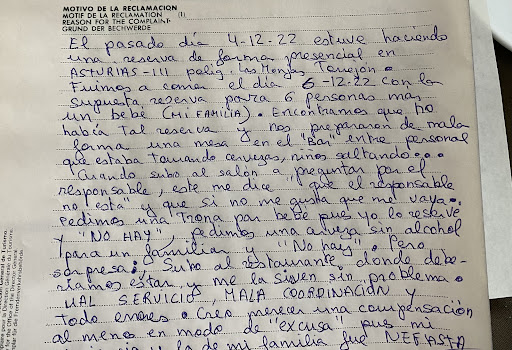 MOTIVO DE LA RECLAMACION
MOTIF DE LA RECLAMATION (1)
REASON FOR THE COMPLAINT
GRUND DER BECHWERDE
El pasado día 4-12-22 estuve haciendo
una reserva de forma presencial en
ASTURIAS-III polig. las Monjas Torrejón.
Fuimos a comer el día 6-12-22 con la
supuesta reserva para 6 personas mas
un bebé (MI FAMILIA). Encontramos que no
había tal reserva y nos prepararon de mala
forma una mesa en el "Bar" entre personal
que estaba tomando cervezas, niños saltando...
Cuando subo al salón a preguntar por el
responsable, este me dice "que el responsable
no está" y que si no me gusta que me vaya.
Pedimos una Trona par bebe pues yo lo reserve
y "NO HAY", pedimos una cerveza sin alcohol
para un familiar y "No hay". Pero
sorpresa; Subo al restaurante donde debe-
riamos estar y me la sirven sin problema.
UAL SERVICIO, MALA COORDINACIÓN y
todo errores. Creo merecer una compensación
al menos en modo de "excusa" pues mi
la de mi familia fue NEFASTA